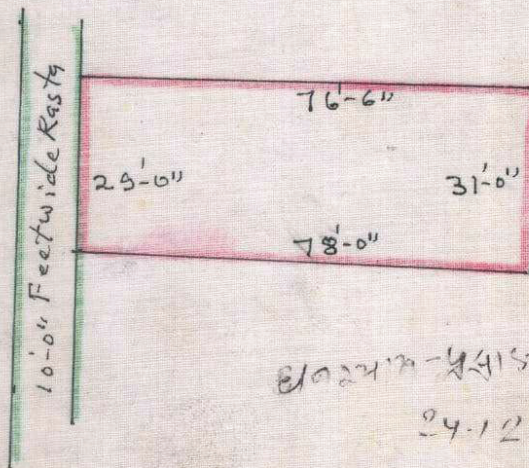 10'-0" Feetwide Rasta
76'-6"
29'-0"
31'-0"
78'-0"